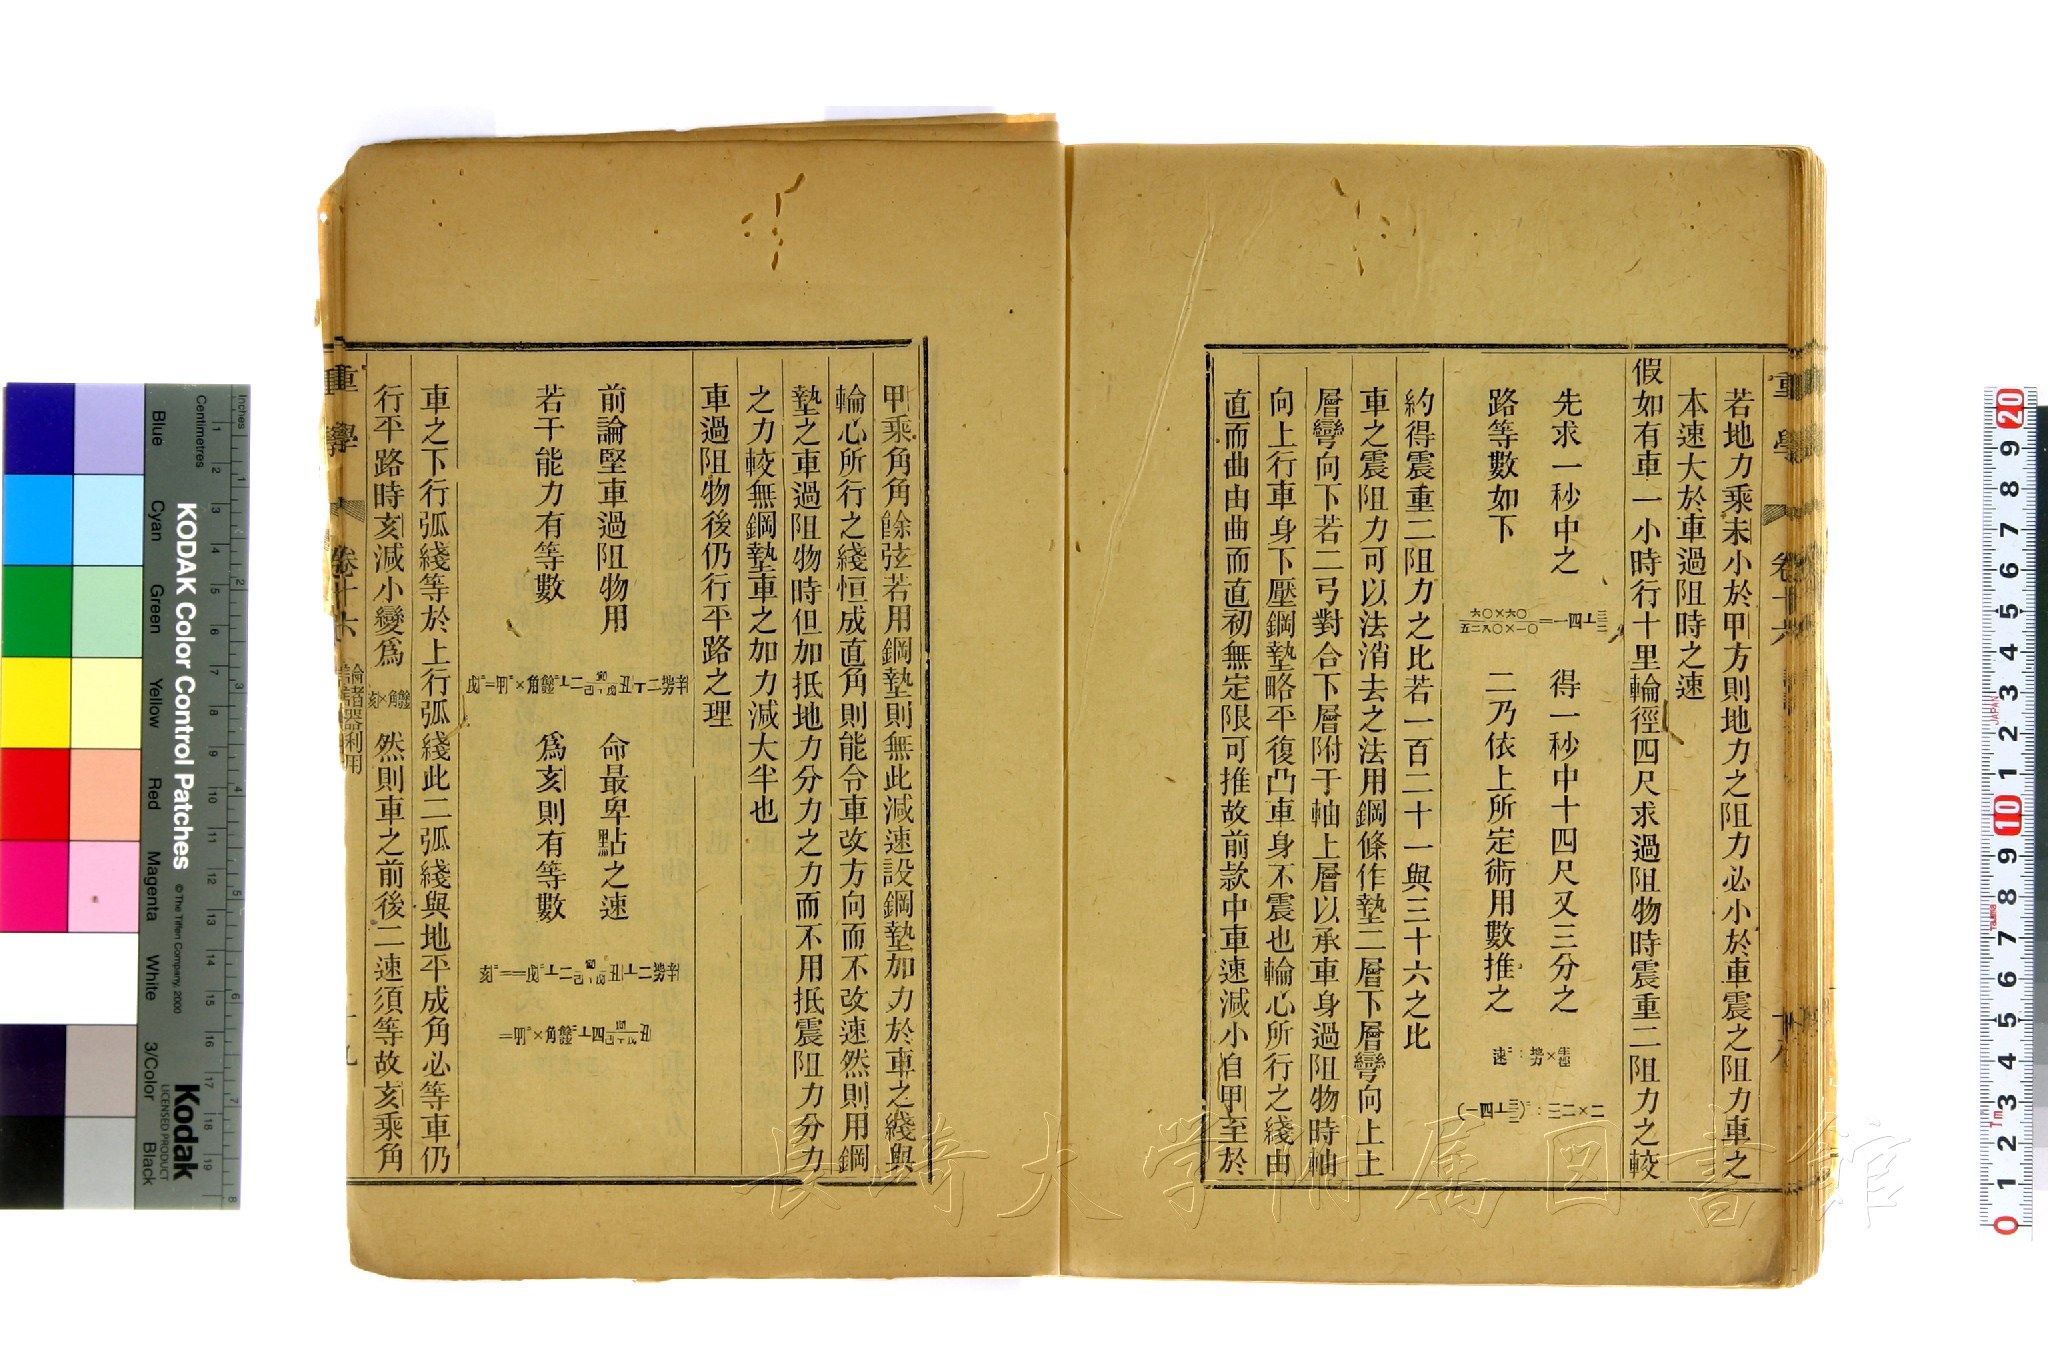 若地力乘未小於甲方則地力之阻力必小於車震之阻力車之
本速大於車過阻時之速
假如有車一小時行十里輪徑四尺求過阻物時震重二阻力之較
先求一秒中之
得一秒中十四尺又三分之
路等數如下
二乃依上所定術用數推之
約得震重二阻力之比若一百二十一與三十六之比
車之震阻力可以法消去之法用鋼條作墊二層下層彎向上上
層彎向下若二弓對合下層附于軸上層以承車身過阻物時軸
向上行車身下壓鋼墊略平復凸車身不震也輪心所行之綫由
直而曲由曲而直初無定限可推故前款中車速減小自甲至於
重學
卷十六
甲乘角角餘弦若用鋼墊則無此減速設鋼墊加力於車之綫與
輪心所行之綫恒成直角則能令車改方向而不改速然則用鋼
墊之車過阻物時但加抵地力分力之力而不用抵震阻力分力
之力較無鋼墊車之加力減大半也
車過阻物後仍行平路之理
前論堅車過阻物用
命最卑點之速
若干能力有等數
為亥則有等數
車之下行弧綫等於上行弧綫此二弧綫與地平成角必等車仍
行平路時亥減小變爲
然則車之前後二速須等故亥乘角
重學
卷十六
論諸器利用
十九
長崎大学附属図書館
KODAK Color Control Patches
© The Tiffen Company, 2000
Kodak
LICENSED PRODUCT
Inches
Centimetres
Blue
Cyan
Green
Yellow
Red
Magenta
White
3/Color
Black